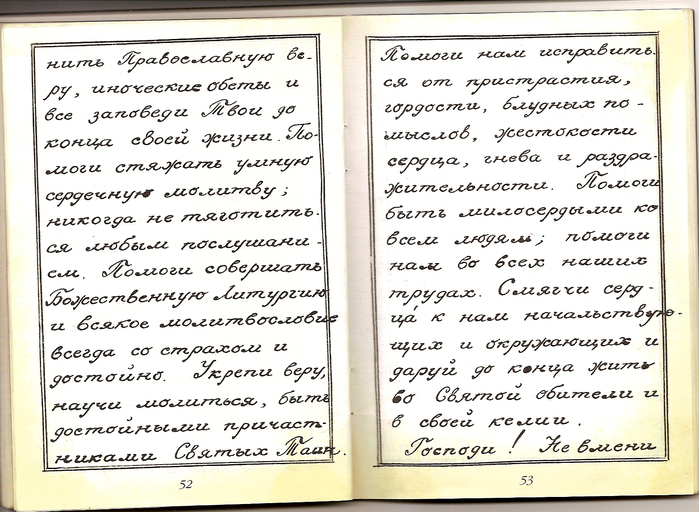 нить Православную ве-
ру, иноческие обеты и
все заповеди Твои до
конца своей жизни. По-
моги стяжать умную
сердечную молитву;
никогда не тяготить-
ся любым послушани-
ем. Помоги совершать
Божественную Литургию
и всякое молитвословие
всегда со страхом и
достойно. Укрепи веру,
научи молиться, быть
достойными причаст-
никами Святых Таин.
52
Помоги нам исправить-
ся от пристрастия,
гордости, блудных по-
мыслов, жестокости
сердца, гнева и раздра-
жительности. Помоги
быть милосердыми ко
всем людям; помоги
нам во всех наших
трудах. Смягчи серд-
ца́ к нам начальствую-
щих и окружающих и
даруй до конца жить
во Святой обители и
в своей келии.
Господи! Не вмени
53